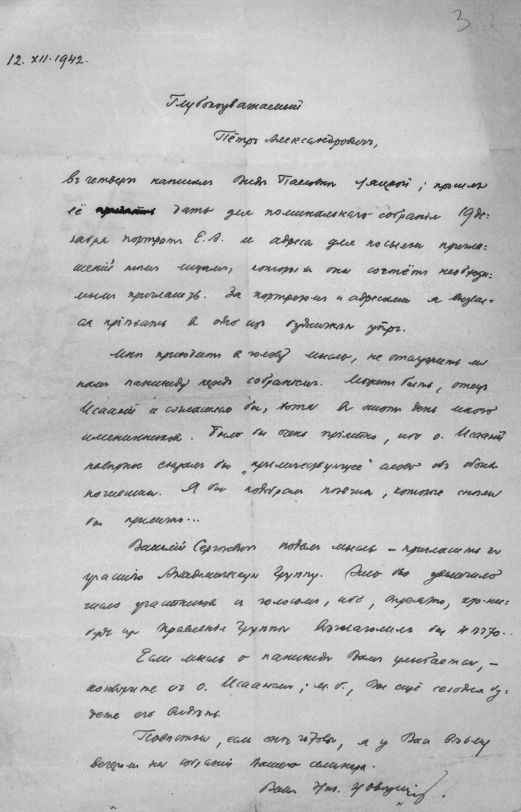 3
12. XII. 1942.
Глубокоуважаемый
Пётръ Александровичъ,
въ четвергъ написалъ Вѣрѣ Павловнѣ Ляцкой; просилъ
её дать для поминальнаго собранія 19 де-
кабря портретъ Е.А. и адреса для посылки пригла-
шеній тѣмъ лицамъ, которыхъ она сочтётъ необходи-
мымъ пригласить. За портретомъ и адресами я вызвал-
ся пріѣхать въ одно изъ утръ.
Мнѣ приходитъ въ голову мысль, не отслужить ли
намъ панихиду передъ собраніемъ. Можетъ быть, отецъ
Исаакій и согласился бы, хотя въ этотъ день много
именинниковъ. Было бы очень пріятно, ибо о. Исаакій
сказалъ бы слово объ
Я бы подобралъ пѣвчихъ, которые спѣли
бы прилично...
Василій Сергѣевичъ подалъ мысль – пригласить къ
участію Академическую Группу. Это бы увеличило
число участниковъ и ибо, вѣроятно, кто-ни-
будь изъ Правленія Группы бы
Если мысль о панихидѣ Вамъ улыбается, –
поговорите съ о. Исаакіемъ; м.б., Вы ещё сегодня бу-
дете его видѣть.
Повѣстки, если онѣ готовы, я у Васъ возьму
вечеромъ на собраніи Вашего семинара.
Вашъ